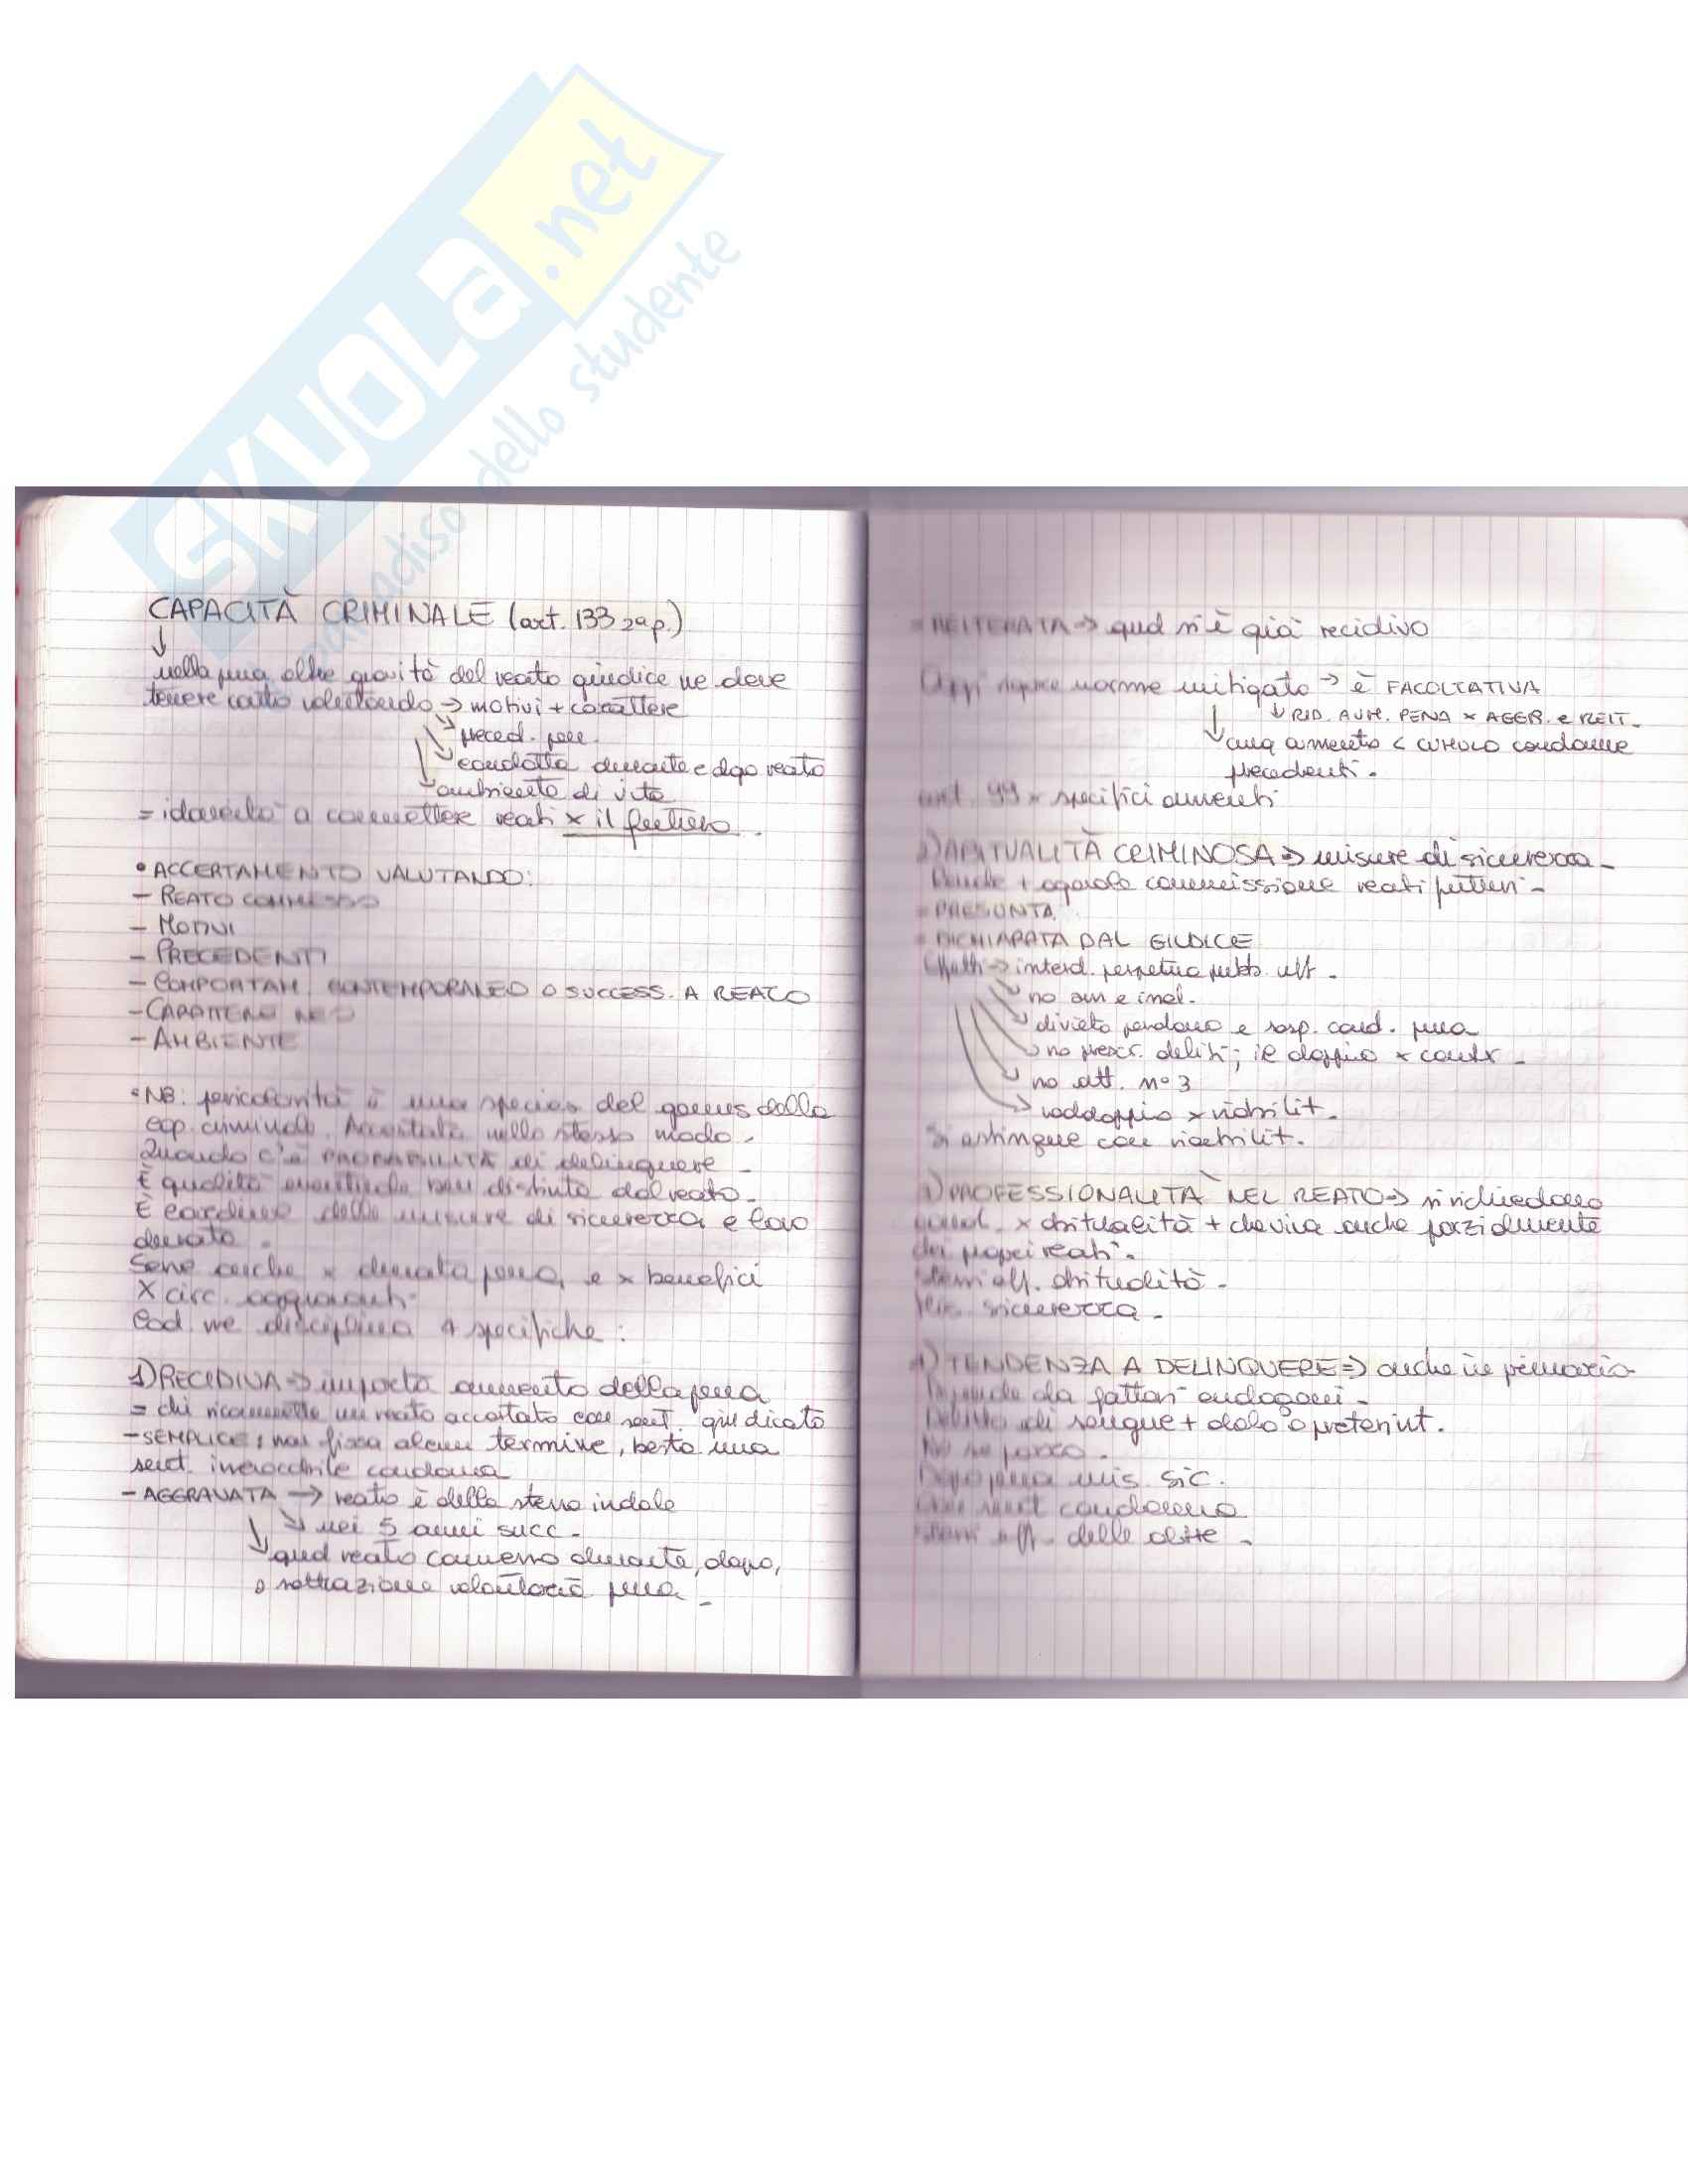 SKUOLA.net
paradiso dello studente
CAPACITÀ CRIMINALE (art. 133 2ap.)
nella pena oltre gravità del reato giudice ne deve
tenere conto valutando → motivi + carattere
preced. pen.
condotta durante e dopo reato
ambiente di vita
= idoneità a commettere reati x il futuro.
• ACCERTAMENTO VALUTANDO:
- REATO COMMESSO
- MOTIVI
- PRECEDENTI
- COMPORTAM. CONTEMPORANEO O SUCCESS. A REATO
- CARATTERE REO
- AMBIENTE
• NB: pericolosità è una species del genus della
cap. criminale. Accertata nello stesso modo.
Quando c'è PROBABILITÀ di delinquere
È qualità eventuale ben distinta dal reato.
È cardine delle misure di sicurezza e loro
durata.
Serve anche x durata pena, e x benefici
X circ. aggravanti.
Cod. ne disciplina 4 specifiche:
1) RECIDIVA → importa aumento della pena
= chi ricommette un reato accertato con sent. giudicato
- SEMPLICE: non fissa alcun termine, basta una
sent. irrevocabile condanna
- AGGRAVATA → reato è della stessa indole
nei 5 anni succ.
qnd reato commesso durante, dopo,
o sottrazione volontaria pena.
- REITERATA → qnd si è già recidivo
Oggi regime norme mitigato → è FACOLTATIVA
RID. AUM. PENA x AGGR. e REIT.
aumento < CUMULO condanne
precedenti.
art. 99 x specifici aumenti
2) ABITUALITÀ CRIMINOSA → misure di sicurezza.
Rende + agevole commissione reati futuri.
- PRESUNTA
- DICHIARATA DAL GIUDICE
Effetti → interd. perpetua pubb. uff.
no am e ind.
divieto perdono e sosp. cond. pena
no prescr. delitti; il doppio x contr.
no att. n° 3
raddoppio x riabilit.
Si estingue con riabilit.
3) PROFESSIONALITÀ NEL REATO → si richiedono
cond. x abitualità + che viva anche parzialmente
dei propri reati.
Stessi eff. abitualità.
Mis. sicurezza.
4) TENDENZA A DELINQUERE → anche in primario
Dipende da fattori endogeni.
Delitto di sangue + dolo o preterint.
No se pazzo.
Dopo pena mis. sic.
Con sent condanna
Stessi eff. delle altre.